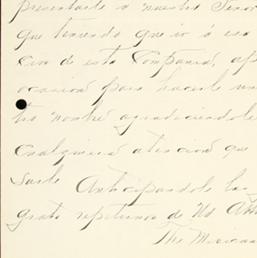 presentarle a nuestro Señor
que teniendo que ir á esa
de esta Compania, ap
ocasion para hacerle un
nombre agradeciendole
cualquiera atencion que
darle Anticipandole las
grato repetirnos de Ud Aff
The Mexican